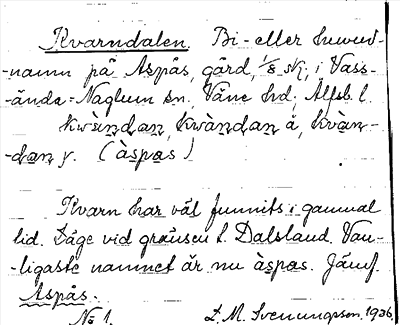 Kvarndalen. Bi- eller huvud-
-namn på Aspås, gård, 1/8 skj; i Vass-
-ända-Naglum sn, Väne hd. Älfsb. l.
kwàṇdaṇ, kwàndaṇ å, kvàn-
-daṇ y. (àspas)
Kvarn har väl funnits i gammal
tid. Läge vid gränsen t. Dalsland. Van-
-ligaste namnet är nu àspas. Jämf.
Aspås.
No 1. D. M. Svenungsson. 1936.